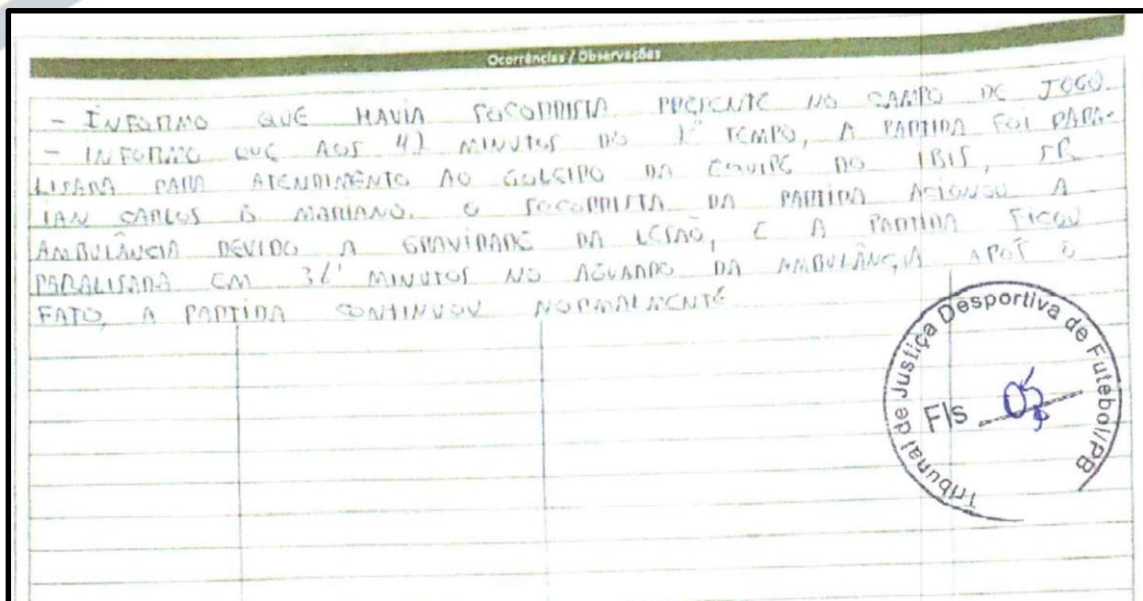 Ocorrências / Observações
- INFORMO QUE HAVIA SOCORRISTA PRESENTE NO CAMPO DE JOGO.
- INFORMO QUE AOS 42 MINUTOS DO 1º TEMPO, A PARTIDA FOI PARA-
LISADA PARA ATENDIMENTO AO GOLEIRO DA EQUIPE DO IBIS, SR.
IAN CARLOS B MARIANO. O SOCORRISTA DA PARTIDA ACIONOU A
AMBULÂNCIA DEVIDO A GRAVIDADE DA LESÃO, E A PARTIDA FICOU
PARALISADA EM MINUTOS NO AGUARDO DA AMBULÂNCIA APÓS O
FATO, A PARTIDA CONTINUOU NORMALMENTE
Tribunal de Justiça Desportiva de Futebol/PB
Fls 05